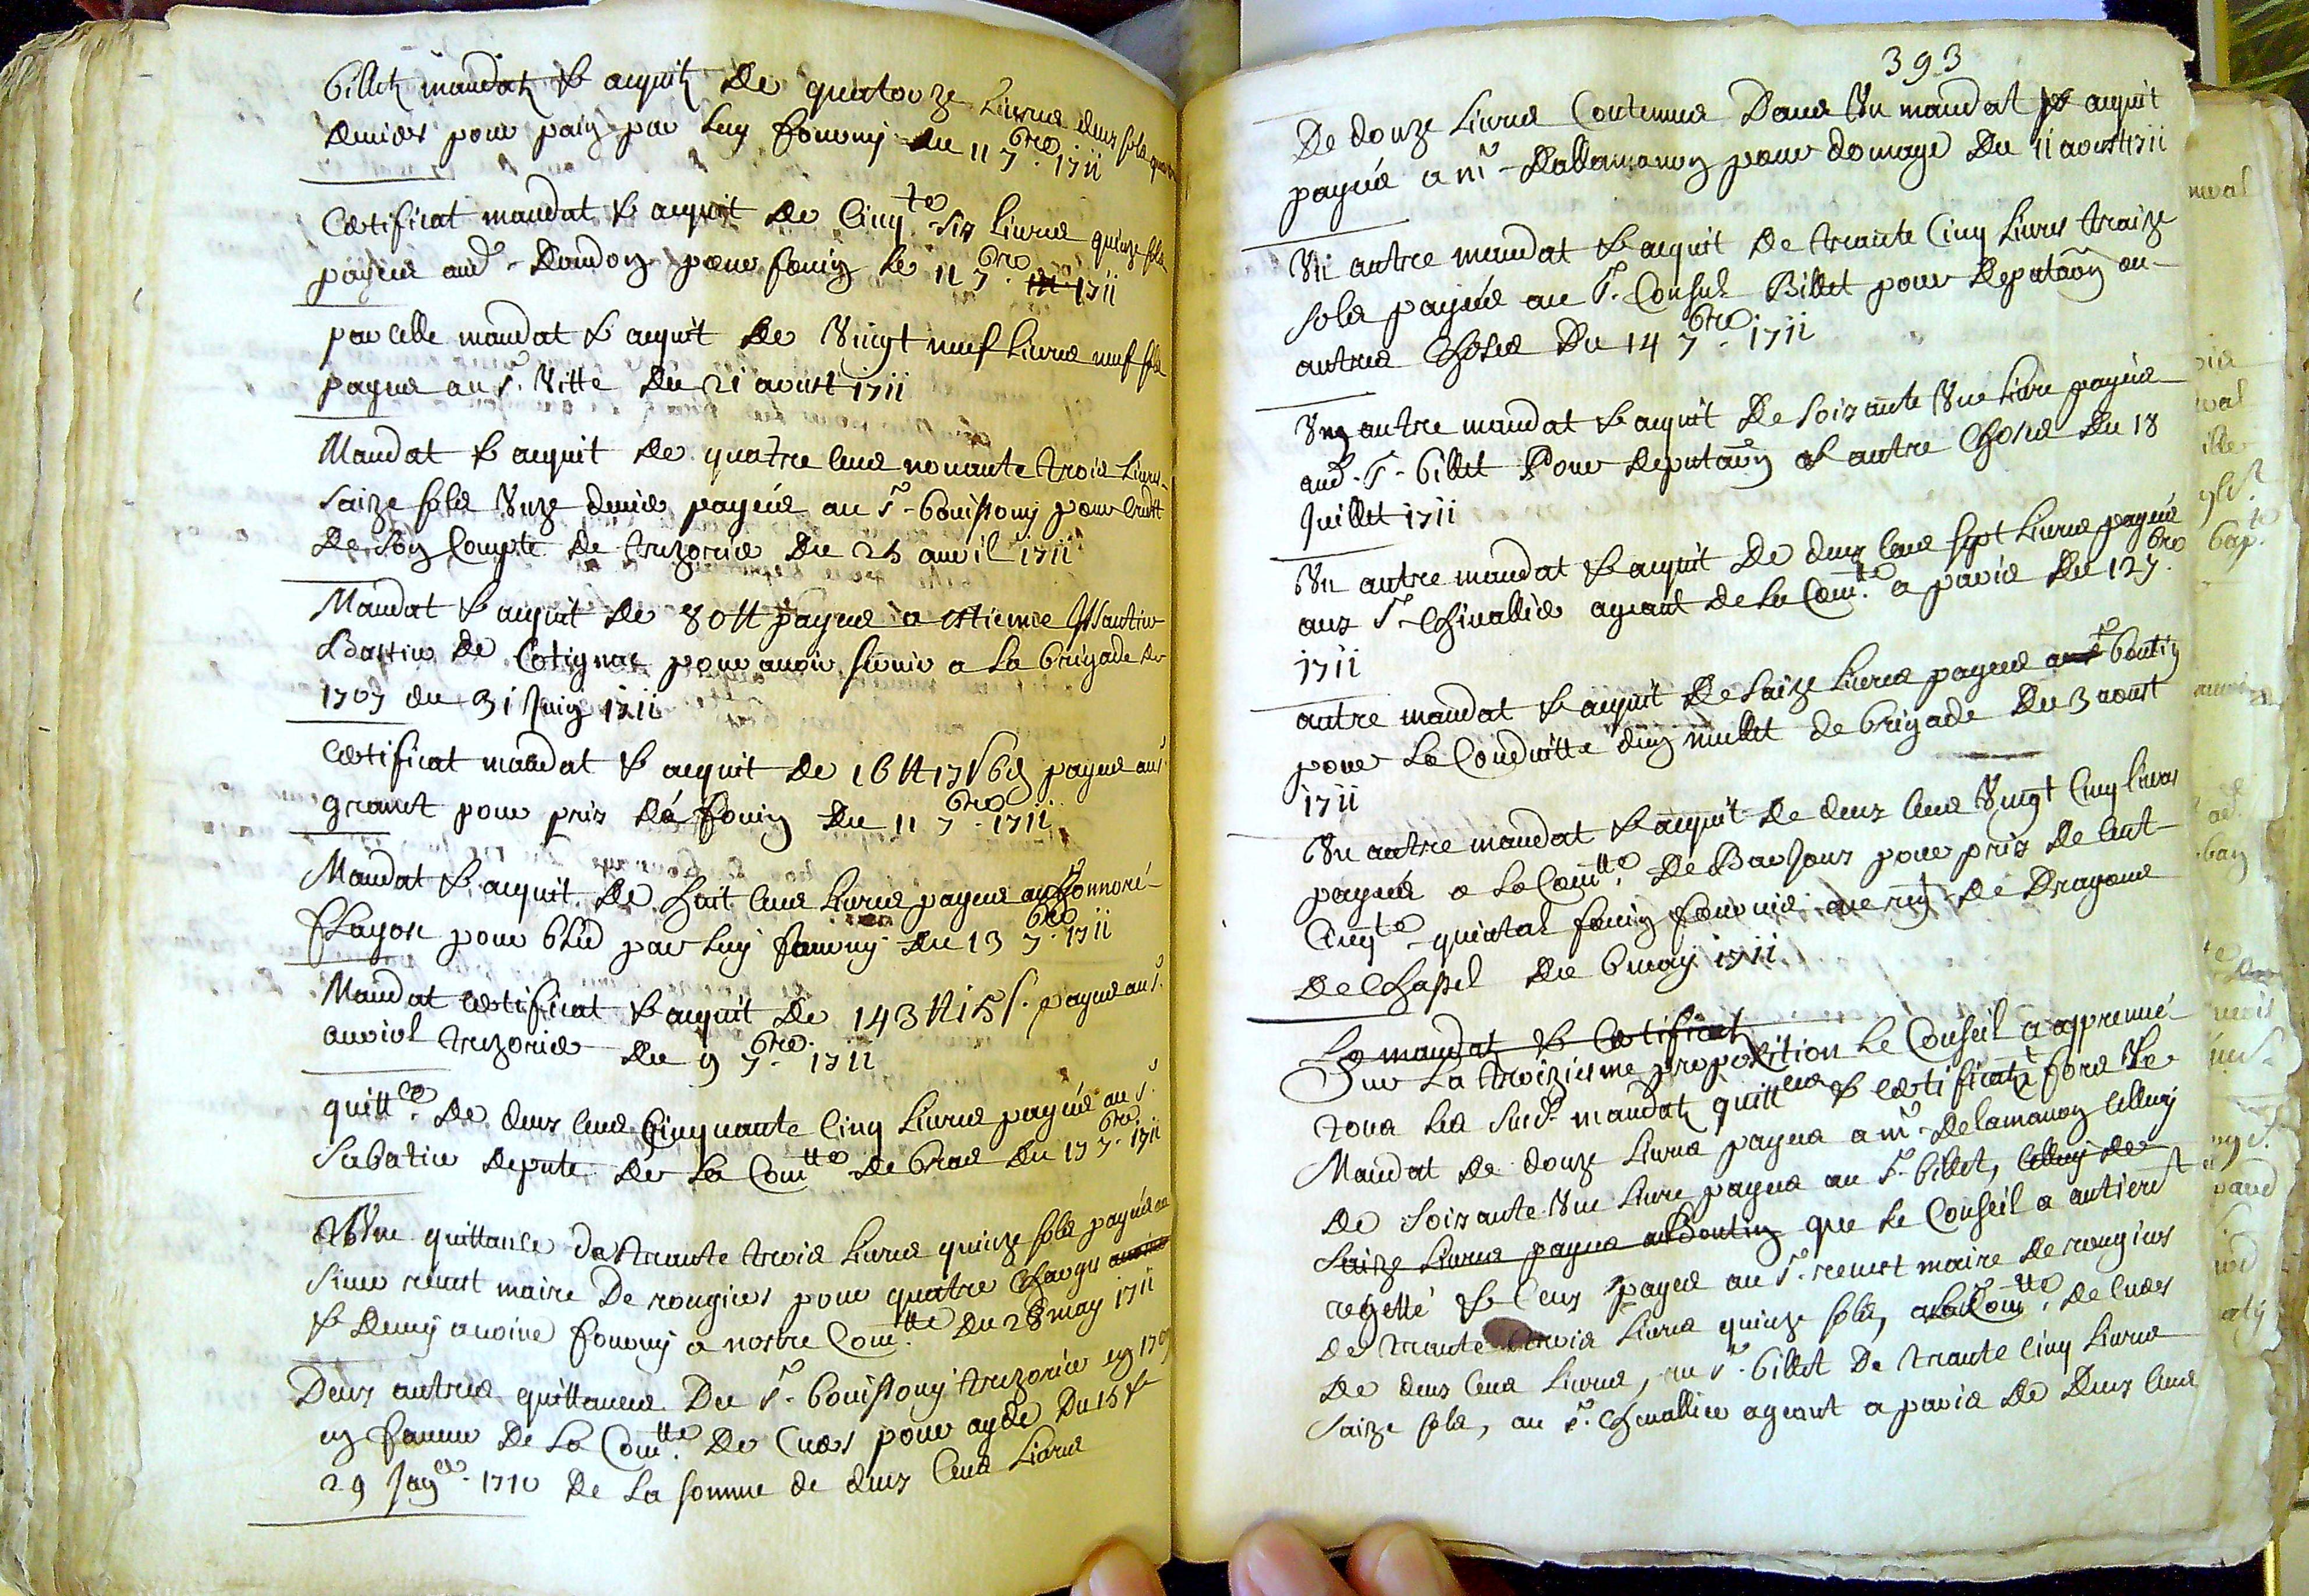 billets mandats & acquits de quatorze livres deux sols quatre
deniers pour pain par luy fourny du 11 7bre 1711
Certificat mandat & acquit de cinqte six livres quinze sols
payées aud. Dandon pour fouin le 11 7bre 1711
parcelle mandat & acquit de vingt neuf livres neuf sols
payées au sr. Vitte du 21 aoust 1711
Mandat & acquit de quatre cens nonante trois livres
saize sols unze deniers payées au sr. bouissony pour
de son compte de trezorier du 25 avril 1711
Mandat & acquit de 80 ₶ payées a estienne
de Cotignac pour avoir servir a la brigade de
1707 du 31 Juin 1711
Certificat mandat & acquit de 16 ₶ 17 s 6 d payées au sr
granet pour prix de fouin du 11 7bre 1711
Mandat & acquit de huit cens livres payées a honnoré
flayosc pour bled par luy fourny du 13 7bre 1711
Mandat certificat & acquit de 143 ₶ 15 s. payées au sr.
auriol trezorier du 9 7bre 1711
quittce. de deux cens cinquante cinq livres payées au sr.
Sabatier deputé de la Comtté de bras du 13 7bre 1711
Une quittance de trante trois livres quinze sols payées au
sieur revest maire de rougiers pour quatre charges
& demy avoine fourny a nostre Comtté du 28 may 1711
Deux autres quittances du sr. bouissony trezorier en 1709
en faveur de la Comtté. de Cuers pour ayde du 15 &
29 Janer. 1710 de la somme de deux cens livres
393
De douze livres contenues dans un mandat & acquit
payées a mr. Dallamanon pour domage du 11 aoust 1711
Un autre mandat & acquit de trante cinq livres traize
sols payées au sr. Consul Billet pour deputaon ou
autres choses du 14 7bre 1711
Un autre mandat & acquit de soixante une livre payées
aud. sr. billet pour deputaon et autre choses du 18
Juillet 1711
Un autre mandat & acquit de deux cens sept livres payées
aux sr. Chivallier ageant de la Comté. a paris du 12 7bre
1711
autre mandat & acquit de saize livres payées boutin
pour la conduitte d'un mullet de brigade du 3 aoust
1711
Un autre mandat & acquit de deux cens vingt cinq livres
payées a la Comtté. de Barjoux pour prix de cent
cinqte. quintal fouin fournis au regt de Dragons
de Chapel du 6 may 1711
Le mandat & Certificat
Sur la troiziesme propozition le Conseil a apreuvé
tous les susd. mandats quittces & certificats fors le
Mandat de douze livres payées a mr. Delamanon celluy
de soixante une livre payées au sr. billet, celluy de
saize livres payées a boutin que le Conseil a
rejetté & ceux payées au sr. revest maire de rougiers
de trante trois livres quinze sols, a la Comtté. de Cuers
de deux cens livres, au sr. billet de trante cinq livres
saize sols, au sr. Chevallier ageant a paris de deux cens